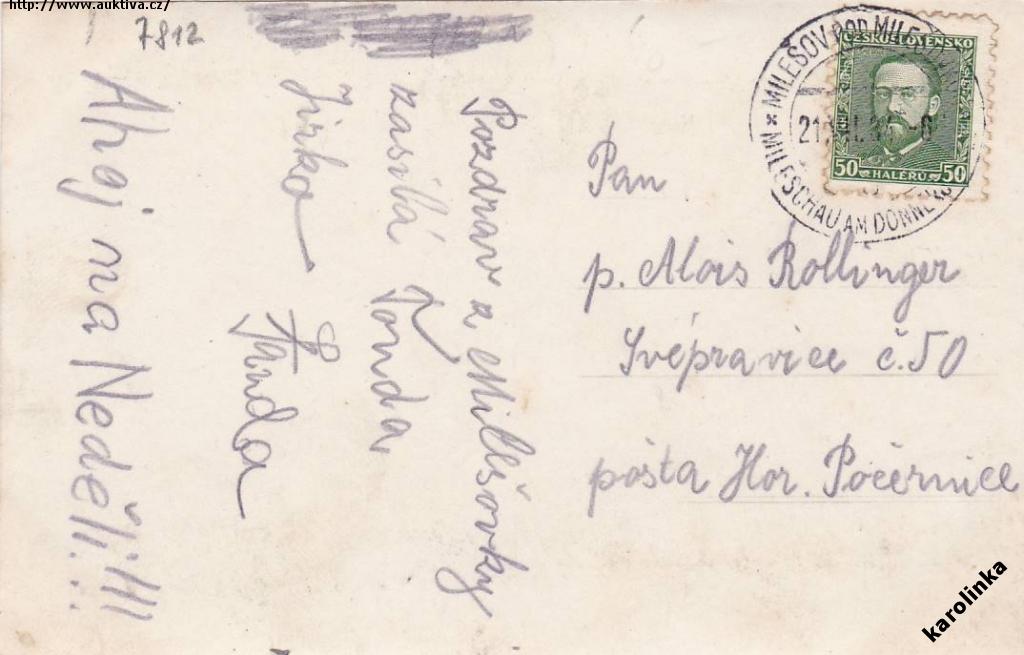 http://www.auktiva.cz/
7812
Pozdrav z Milešovky
zasílá Tonda,
Jirka
Standa
Ahoj na Neděli!!!
MILEŠOV POD MILEŠ
MILESCHAU AM DONNE
ČESKOSLOVENSKO
50 HALÉŘŮ 50
Pan
p. Alois Rollinger
Svépravice č. 50
pošta Hor. Počernice
karolinka